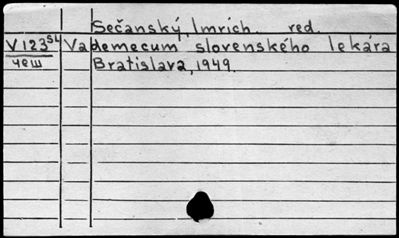 Sečanský, Imrich. red.
V 123⁵⁴ Vademecum slovenského lekára
чеш Bratislava, 1949.